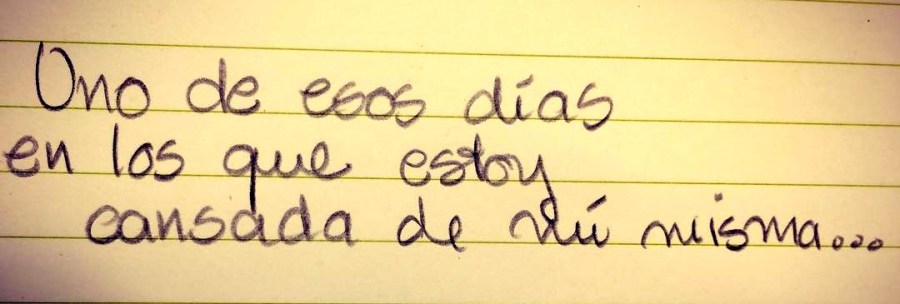 Uno de esos días
en los que estoy
cansada de mí misma...